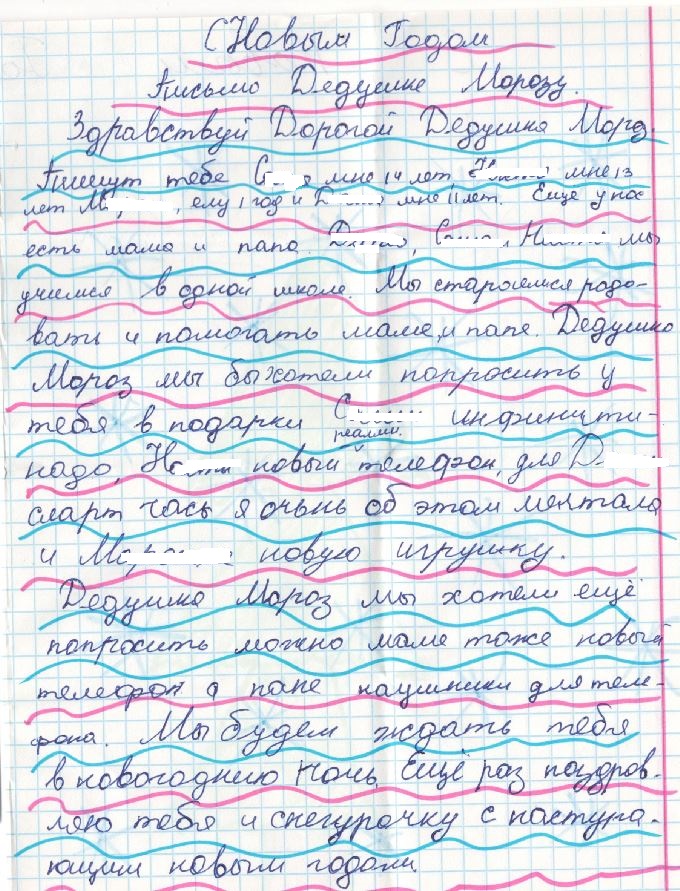 С Новым Годом
Письмо Дедушке Морозу.
Здравствуй Дорогой Дедушка Мороз.
Пишут тебе С я мне 14 лет, мне 13
лет М, ему 1 год и мне 11 лет. Еще у нас
есть мама и папа. Д, С, Н мы
учимся в одной школе. Мы стараемся радо-
вать и помогать маме, и папе. Дедушка
Мороз мы бы хотели попросить у
тебя в подарки С
реалми.
надо, Н новый телефон, для Д
смарт часы я очень об этом мечтала
и М новую игрушку.
Дедушка Мороз мы хотели ещё
попросить можно маме тоже новый
телефон а папе наушники для теле-
фона. Мы будем ждать тебя
в новогоднию ночь. Ещё раз поздров-
ляю тебя и снегурочку с наступа-
ющим новым годом.